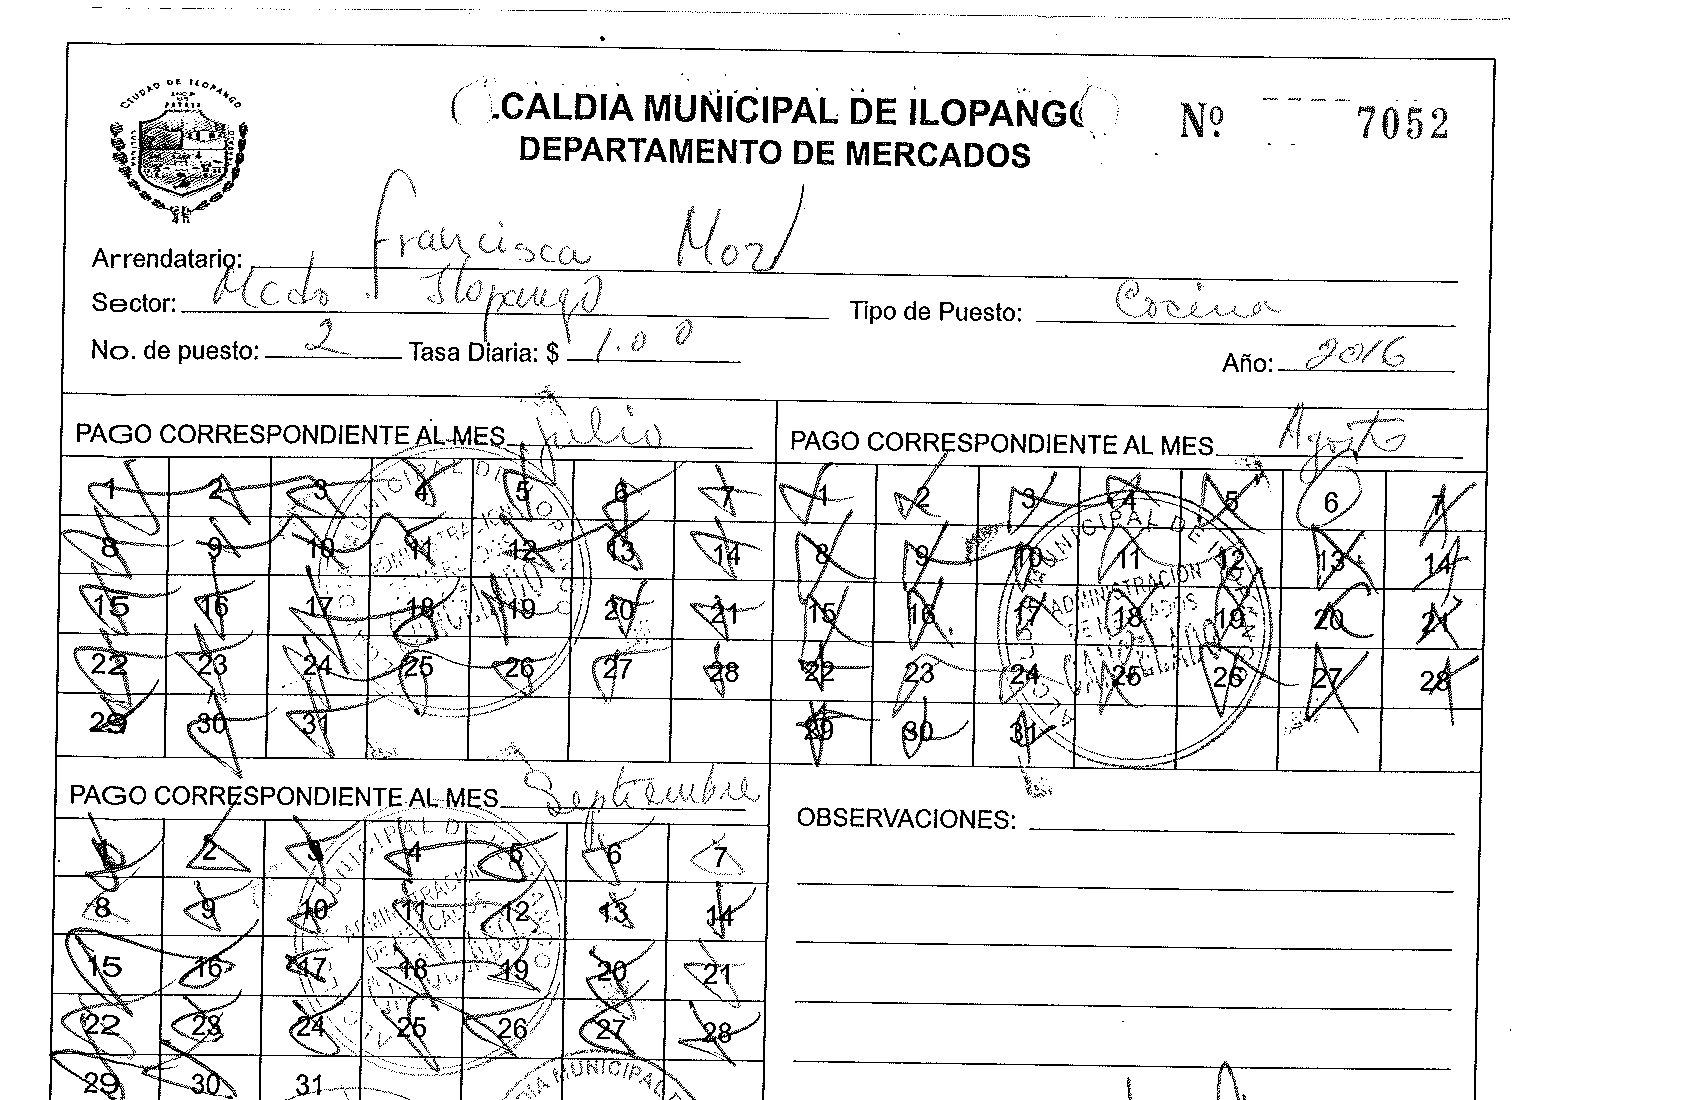 CIUDAD DE ILOPANGO
.CALDIA MUNICIPAL DE ILOPANGO
Nº 7052
DEPARTAMENTO DE MERCADOS
Arrendatario: Francisca
Sector: Mcdo. Ilopango Tipo de Puesto: Cocina
No. de puesto: 2 Tasa Diaria: $ 1.00 Año: 2016
PAGO CORRESPONDIENTE AL MES Julio
1 2 3 4 5 6 7
8 9 10 11 12 13 14
15 16 17 18 19 20 21
22 23 24 25 26 27 28
29 30 31
PAGO CORRESPONDIENTE AL MES Agosto
1 2 3 4 5 6 7
8 9 10 11 12 13 14
15 16 17 18 19 20 21
22 23 24 25 26 27 28
29 30 31
MUNICIPAL DE
ADMINISTRACION
PAGO CORRESPONDIENTE AL MES Septiembre
1 2 3 4 5 6 7
8 9 10 11 12 13 14
15 16 17 18 19 20 21
22 23 24 25 26 27 28
29 30 31
MUNICIPAL DE
ADMINISTRACION
MUNICIPAL
OBSERVACIONES: